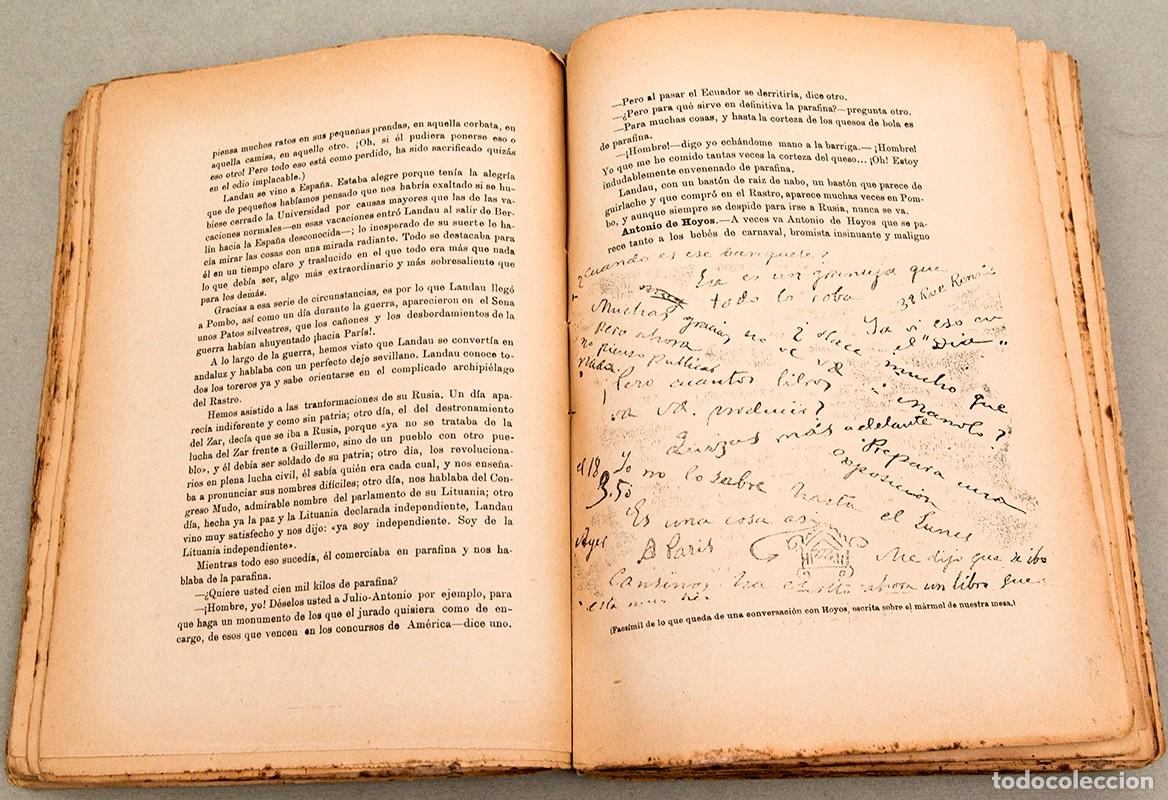 piensa muchos ratos en sus pequeñas prendas, en aquella corbata, en
aquella camisa, en aquello otro. ¡Oh, si él pudiera ponerse eso o
eso otro! Pero todo eso está como perdido, ha sido sacrificado quizás
en el odio implacable.)
Landau se vino a España. Estaba alegre porque tenía la alegría
que de pequeños habíamos pensado que nos habría exaltado si se hu-
biese cerrado la Universidad por causas mayores que las de las va-
caciones normales—en esas vacaciones entró Landau al salir de Ber-
lín hacia la España desconocida—; lo inesperado de su suerte le ha-
cía mirar las cosas con una mirada radiante. Todo se destacaba para
él en un tiempo claro y traslucido en el que todo era más que nada
lo que debía ser, algo más extraordinario y más sobresaliente que
para los demás.
Gracias a esa serie de circunstancias, es por lo que Landau llegó
a Pombo, así como un día durante la guerra, aparecieron en el Sena
unos Patos silvestres, que los cañones y los desbordamientos de la
guerra habían ahuyentado ¡hacia París!.
A lo largo de la guerra, hemos visto que Landau se convertía en
andaluz y hablaba con un perfecto deje sevillano. Landau conoce to-
dos los toreros ya y sabe orientarse en el complicado archipiélago
del Rastro.
Hemos asistido a las tranformaciones de su Rusia. Un día apa-
recía indiferente y como sin patria; otro día, el del destronamiento
del Zar, decía que se iba a Rusia, porque «ya no se trataba de la
lucha del Zar frente a Guillermo, sino de un pueblo con otro pue-
blo», y él debía ser soldado de su patria; otro día, los revoluciona-
rios en plena lucha civil, él sabía quién era cada cual, y nos enseña-
ba a pronunciar sus nombres difíciles; otro día, nos hablaba del Con-
greso Mudo, admirable nombre del parlamento de su Lituania; otro
día, hecha ya la paz y la Lituania declarada independiente, Landau
vino muy satisfecho y nos dijo: «ya soy independiente. Soy de la
Lituania independiente».
Mientras todo eso sucedía, él comerciaba en parafina y nos ha-
blaba de la parafina.
—¿Quiere usted cien mil kilos de parafina?
—¡Hombre, yo! Déselos usted a Julio-Antonio por ejemplo, para
que haga un monumento de los que el jurado quisiera como de en-
cargo, de esos que vencen en los concursos de América—dice uno.
—Pero al pasar el Ecuador se derritiría, dice otro.
—¿Pero para qué sirve en definitiva la parafina?—pregunta otro.
—Para muchas cosas, y hasta la corteza de los quesos de bola es
de parafina.
—¡Hombre!—digo yo echándome mano a la barriga.—¡Hombre!
Yo que me he comido tantas veces la corteza del queso... ¡Oh! Estoy
indudablemente envenenado de parafina.
Landau, con un bastón de raíz de nabo, un bastón que parece de
guirlache y que compró en el Rastro, aparece muchas veces en Pom-
bo, y aunque siempre se despide para irse a Rusia, nunca se va.
Antonio de Hoyos.—A veces va Antonio de Hoyos que se pa-
rece tanto a los bebés de carnaval, bromista insinuante y maligno
¿cuando es ese banquete?
Esa es un granuja que
todo lo roba
32 Rue
Muchas gracias no
Ya vi eso en
el "Dia"
Pero ahora
no pienso publicar
nada
¿ Hace mucho que
no ve vd a Manolo?
¡Pero cuantos libros
va vd. producir?
Quizás más adelante
Prepara una
exposición
el 18
3.50
Yo no lo sabre hasta el Lunes
Es una cosa asi
Ayer
A Paris
Me dijo que se iba
Cansinos ha escrito ahora un libro que
esta muy bien
(Facsímil de lo que queda de una conversación con Hoyos, escrita sobre el mármol de nuestra mesa.)
todocoleccion